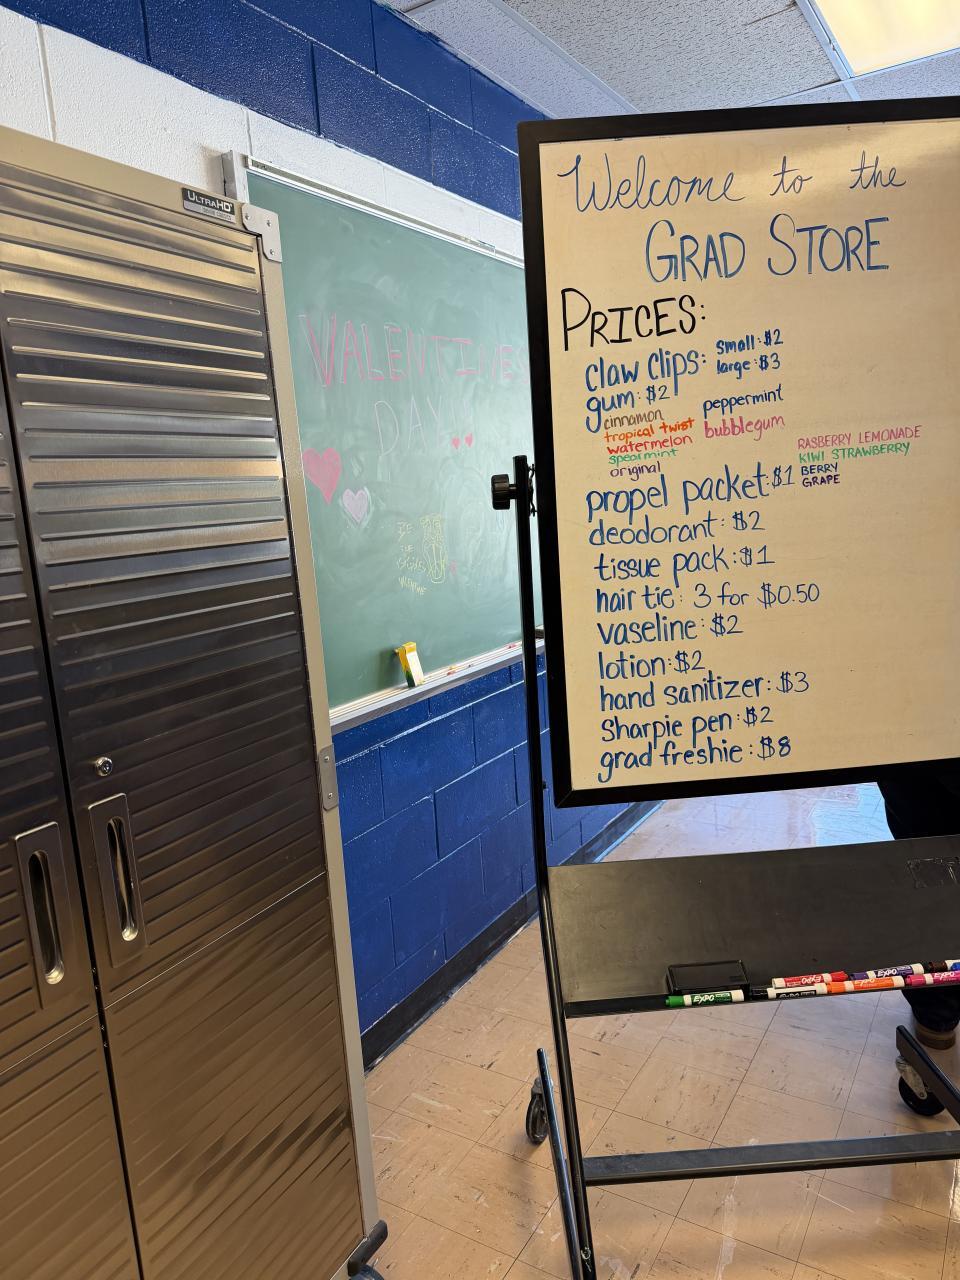 ULTRAHD
VALENTINES
DAY
VALENTINE
Welcome to the
GRAD STORE
PRICES:
claw clips: small: $2
large: $3
gum: $2
cinnamon
peppermint
tropical twist
bubblegum
watermelon
spearmint
original
propel packet: $1
RASBERRY LEMONADE
KIWI STRAWBERRY
BERRY
GRAPE
deodorant: $2
tissue pack: $1
hair tie: 3 for $0.50
vaseline: $2
lotion: $2
hand sanitizer: $3
sharpie pen: $2
grad freshie: $8
EXPO
EXPO
EXPO
EXPO
EXPO
EXPO